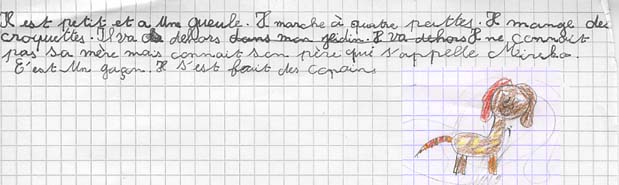 Il est petit et a une gueule. Il marche à quatre pattes. Il mange des
croquettes. Il va dehors dans mon jardin. Il va dehors Il ne connait
pas sa mère mais connait son père qui s'appelle
C'est un garçon. Il s'est fait des copains